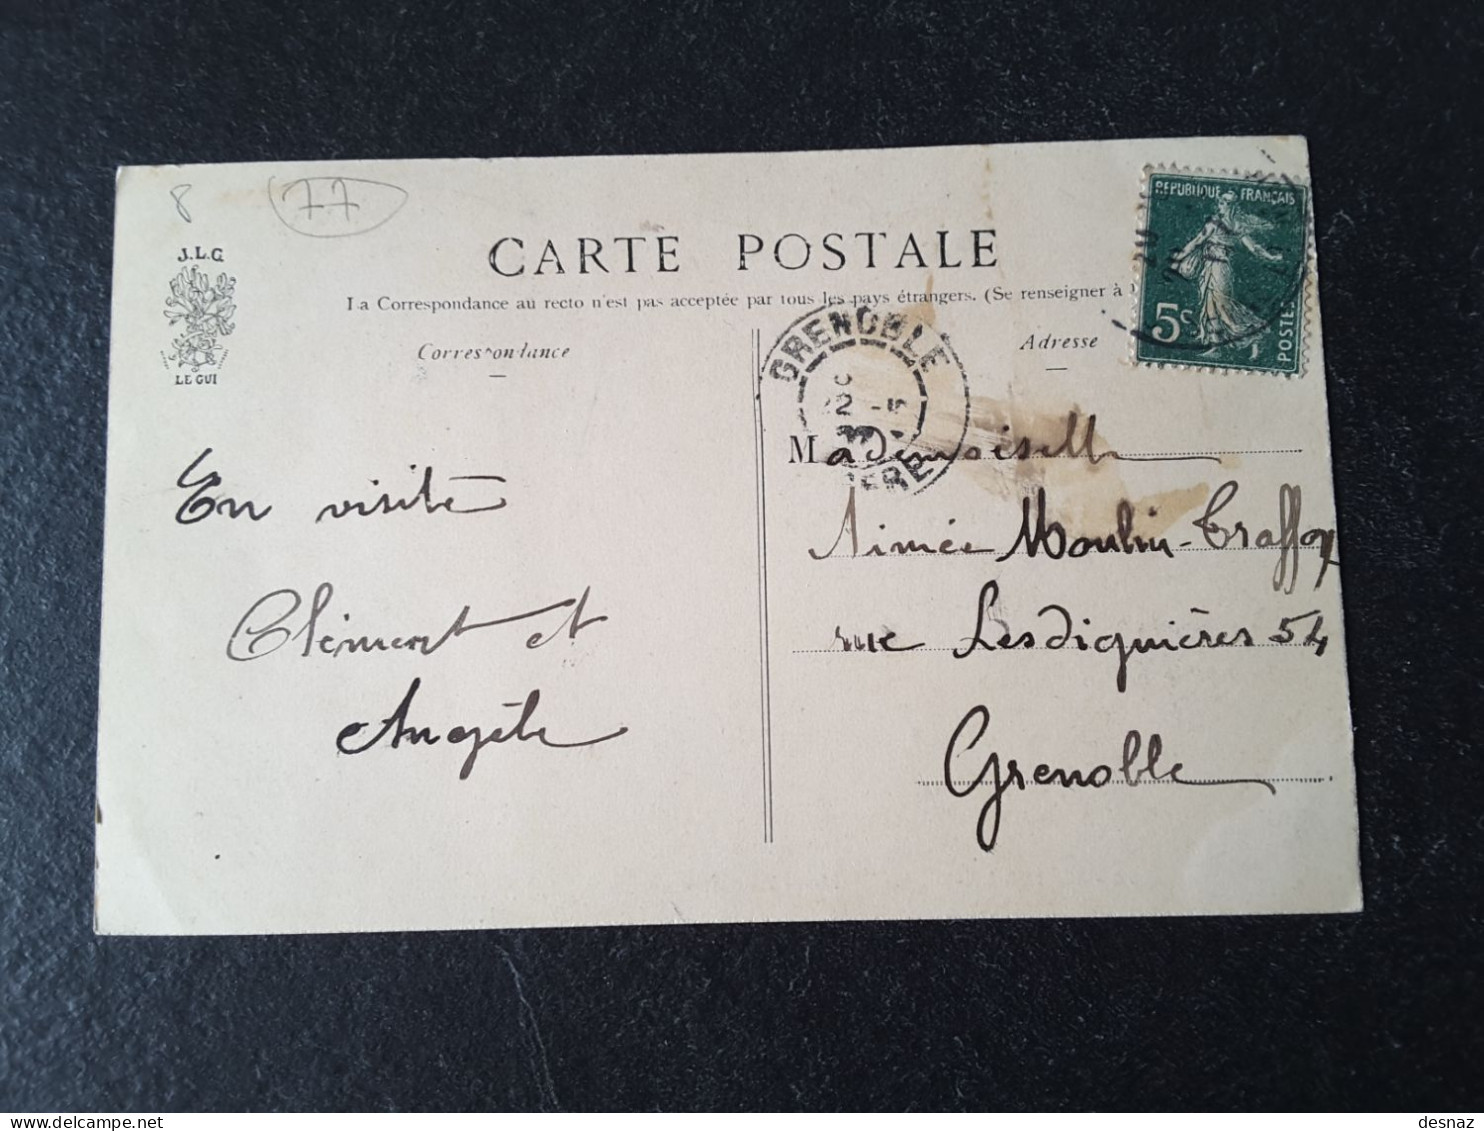 8
77
J.L.G
LE GUI
CARTE POSTALE
La Correspondance au recto n'est pas acceptée par tous les pays étrangers. (Se renseigner à
Correspondance
Adresse
REPUBLIQUE FRANÇAISE
5c
POSTES
GRENOBLE
ISERE
En visite
Clément et
Angèle
Mademoiselle
Aimée Moulin-Traffort
rue Lesdiguières 54
Grenoble
desnaz